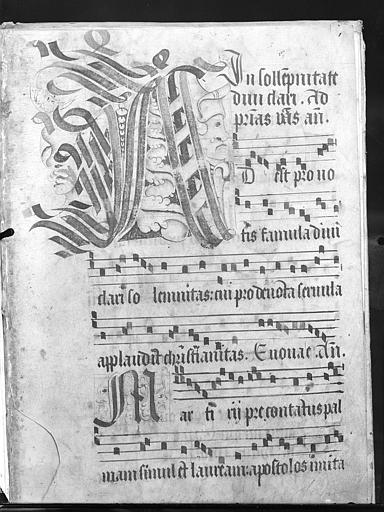 In sollẽpnitate
diui clari. Ad
prias ṽas añ.
Ad est pro uo
tis famula diui
clari so lemnitas: cui pro deuota seruula
applaudit christianitas. Euouae. Añ.
Mar ti rij pre contatus pal
mam simul et lauream: apostolos imita